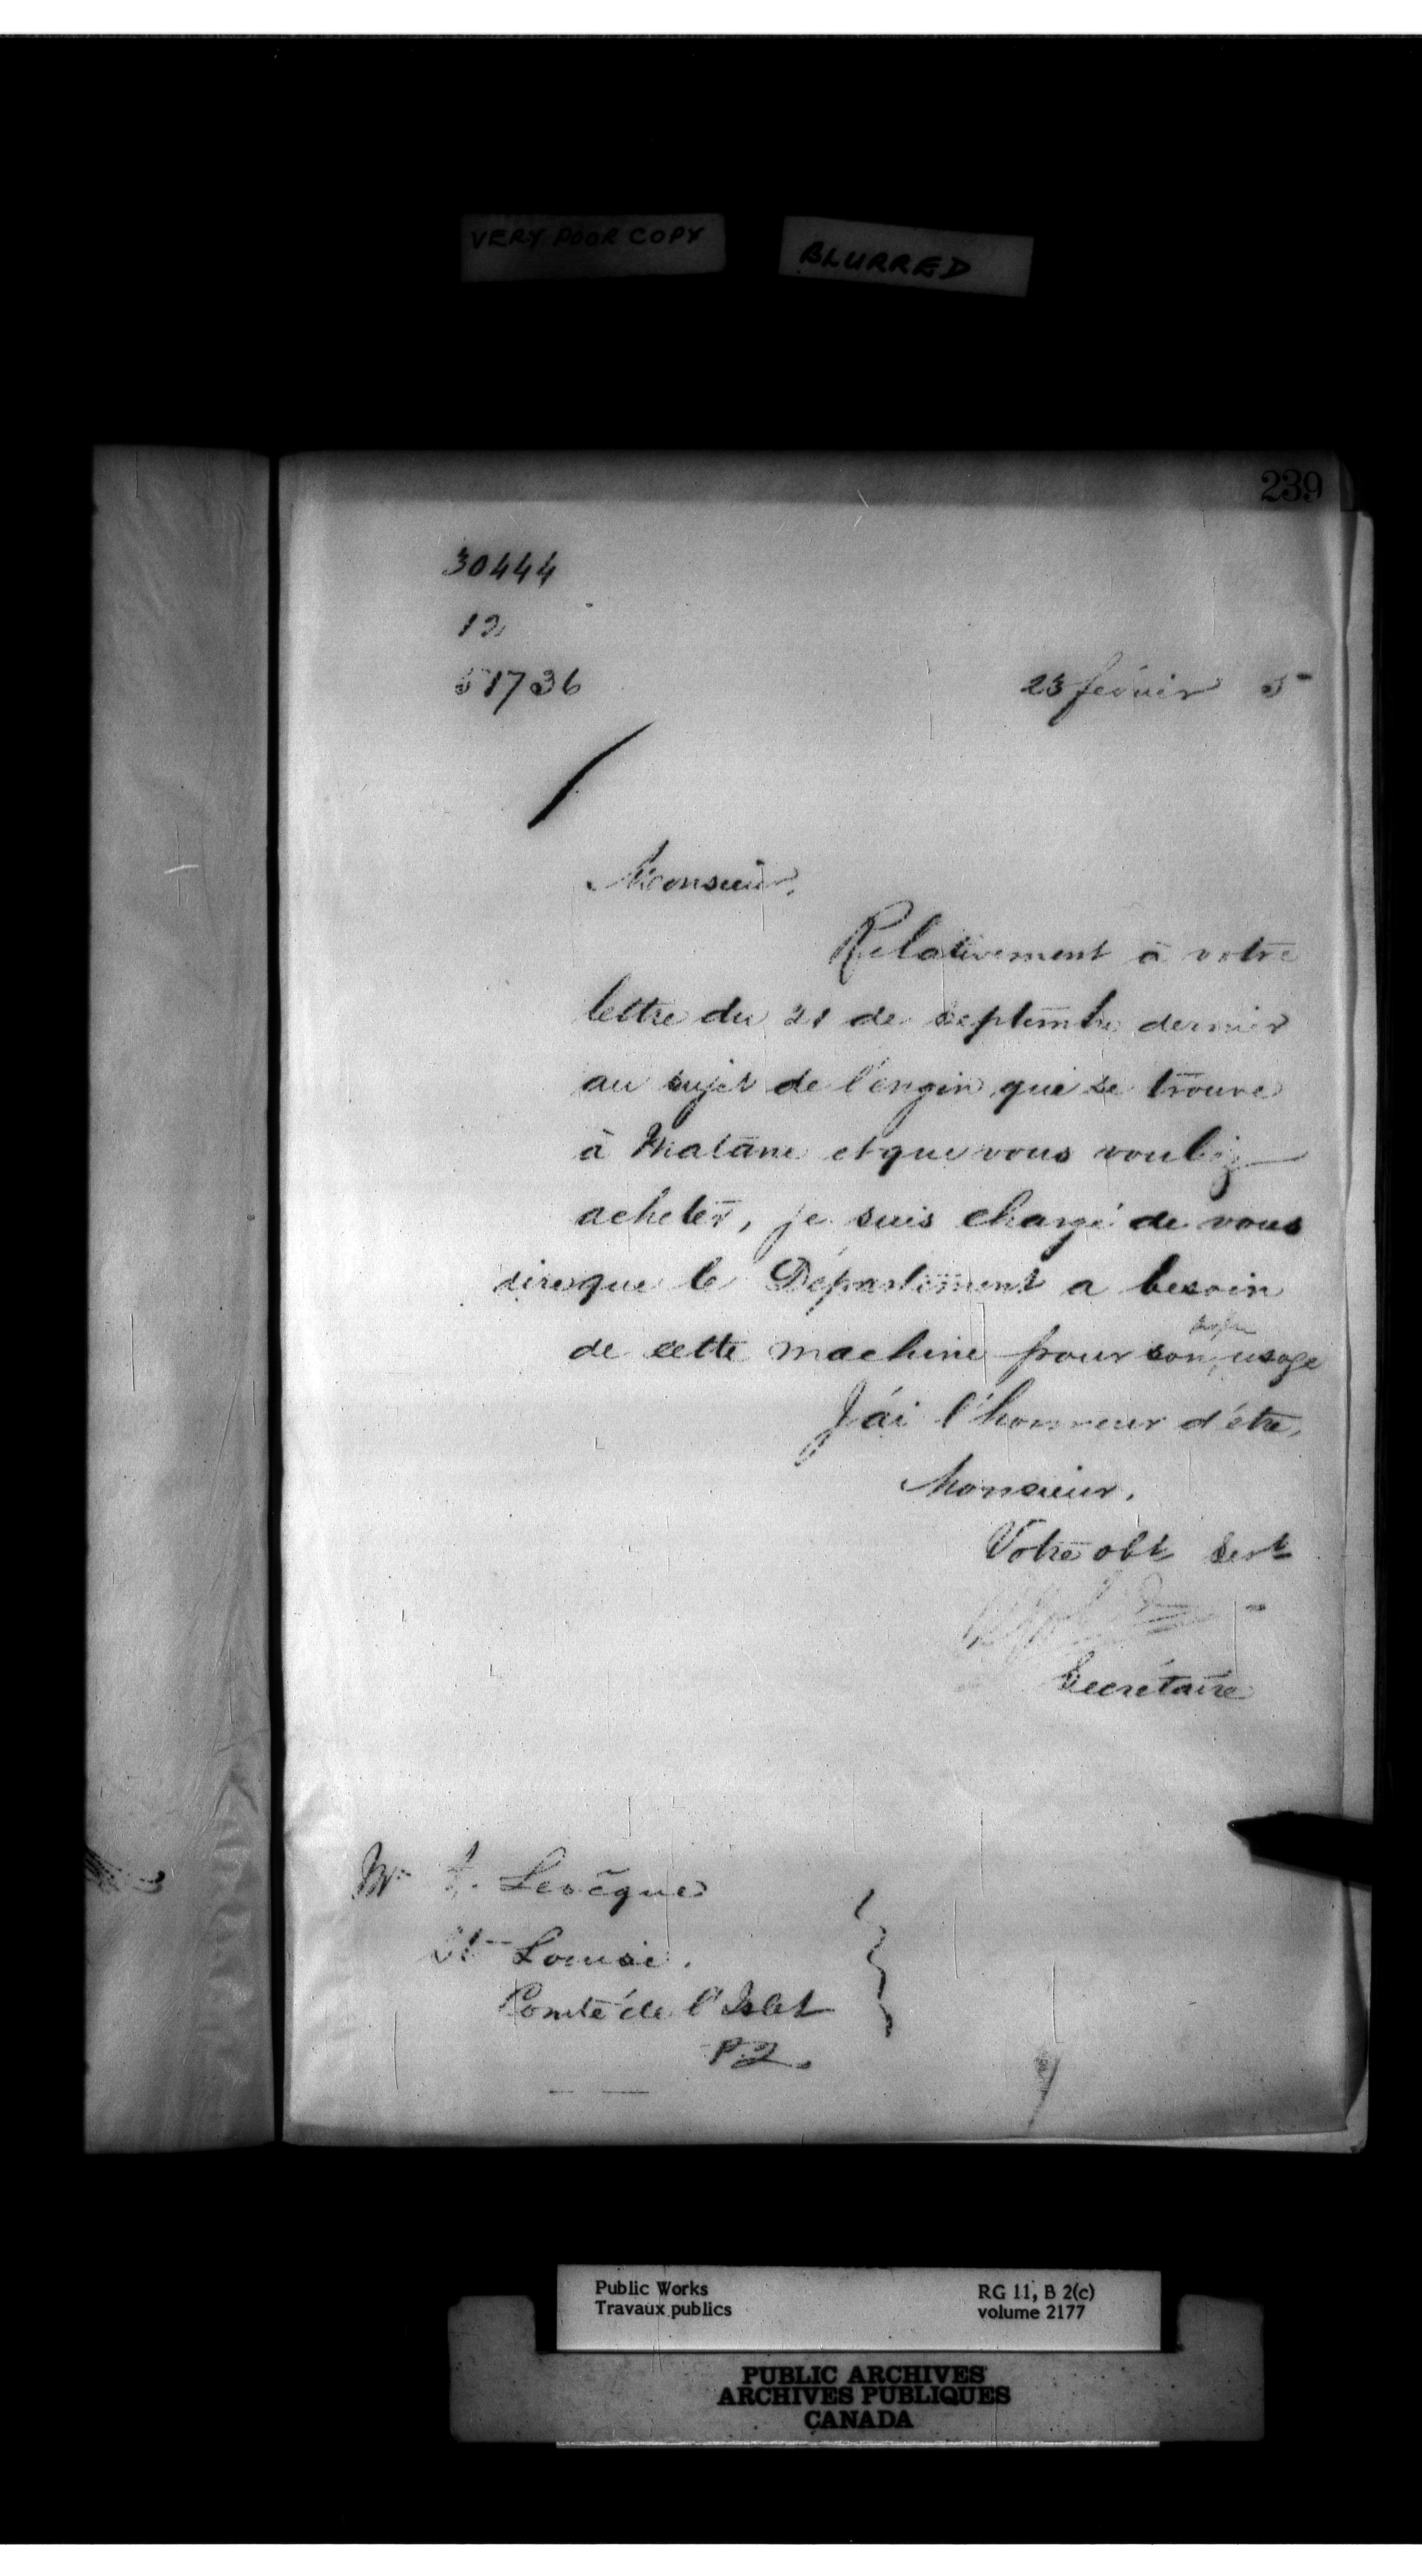 VERY POOR COPY
BLURRED
239
30444
12
51736
23 fevrier 5
Monsieur,
Relativement à votre
lettre du 21 de Septembre dernier
au sujet de l'engin que se trouve
à Matane et que vous vouliez
acheter, je suis chargé de vous
dire que le Département a besoin
de cette machine pour son usage
J'ai l'honneur d'être,
Monsieur,
Votre obt Sert
Secrétaire
Mr Levêque
Ste Louise.
Comté de l'Islet
P.Q.
Public Works
Travaux publics
RG 11, B 2(c)
volume 2177
PUBLIC ARCHIVES
ARCHIVES PUBLIQUES
CANADA